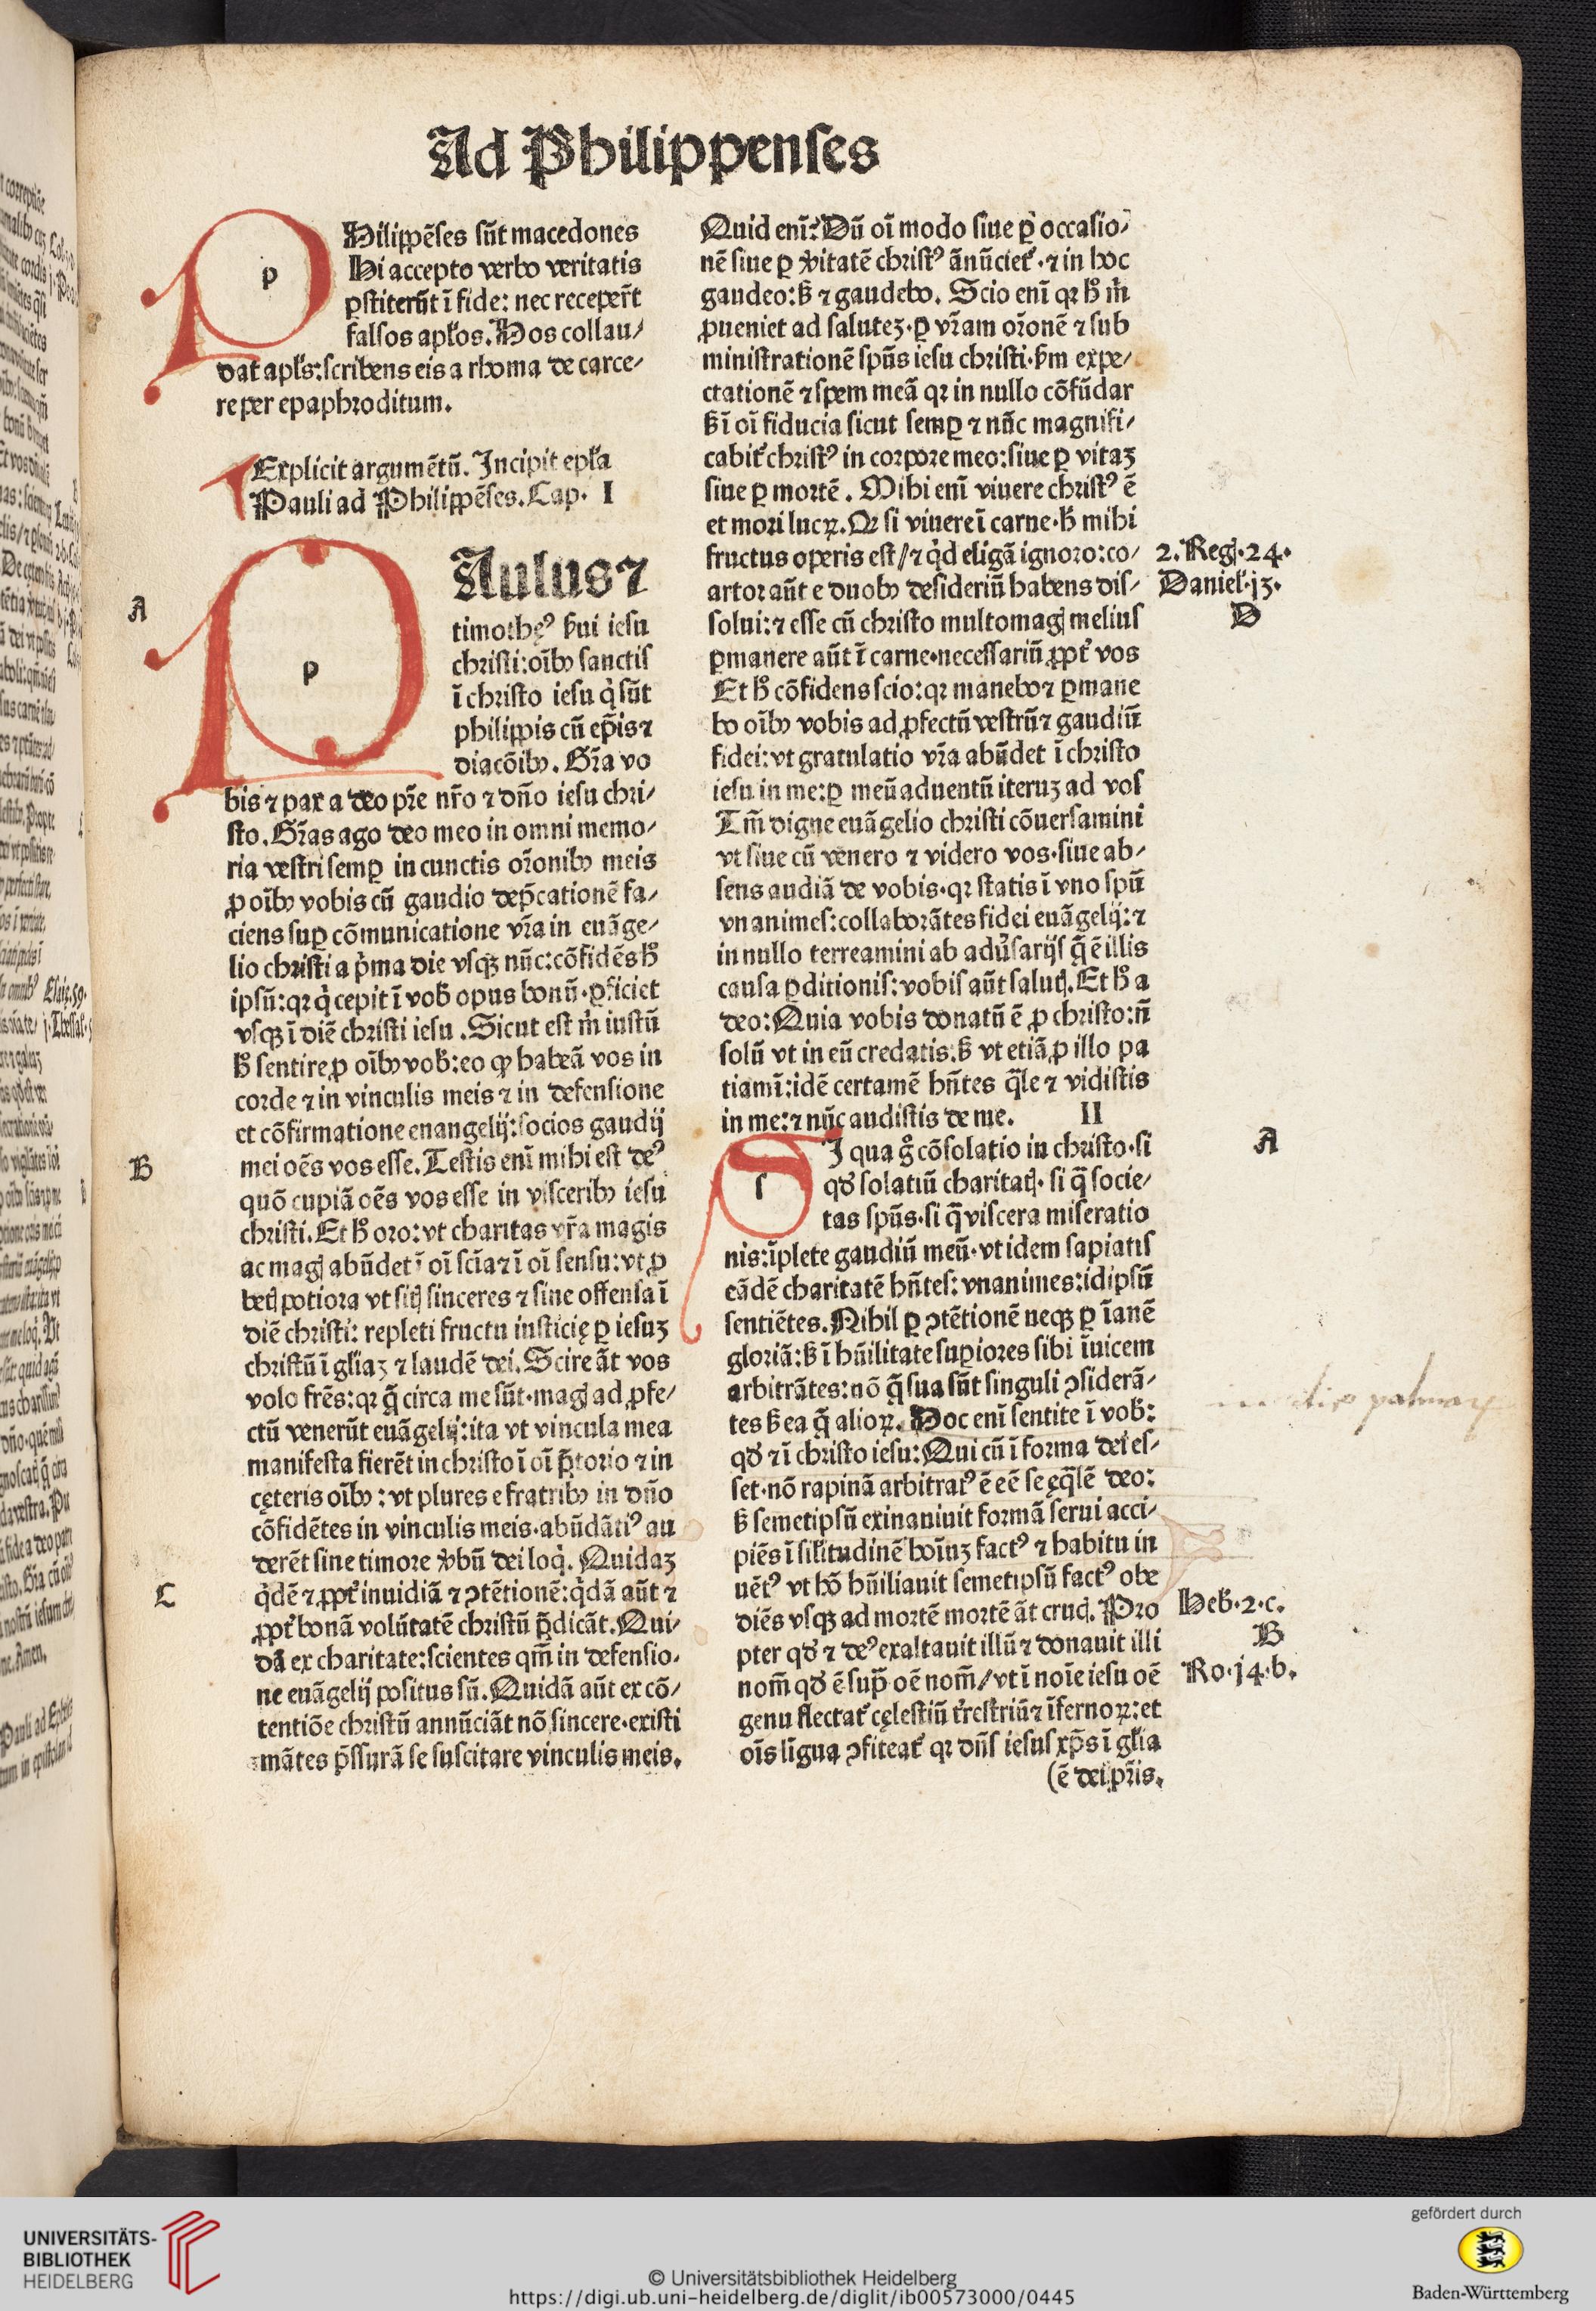 Ad Philippenses
PHilippẽses sũt macedones
Hi accepto verbo veritatis
ꝑstiterũt ĩ fide: nec receper̃t
falsos apl'os. Hos collau/
dat apl's: scribens eis a rhoma de carce/
re per epaphroditum.
Explicit argumẽtũ. Incipit epl'a
Pauli ad Philippẽses. Cap. I
A
PAulus ⁊
timothęꝰ ßui iesu
christi: oĩbꝰ sanctis
ĩ christo iesu q̇ sũt
philippis cũ ep̃is ⁊
diacõibꝰ. Gr̃a vo
bis ⁊ pax a deo pr̃e nr̃o ⁊ dño iesu chri/
sto. Gr̃as ago deo meo in omni memo/
ria vestri semꝑ in cunctis or̃onibꝰ meis
ꝓ oĩbꝰ vobis cũ gaudio dep̃cationẽ fa/
ciens suꝑ cõmunicatione vr̃a in euãge/
lio christi a p̃ma die vsqꝫ nũc: cõfidẽs h̊
ipsũ: qꝛ q̇ cepit ĩ vob̃ opus bonũ ꝑficiet
vsqꝫ ĩ diẽ christi iesu. Sicut est m̃ iustũ
h̊ sentire ꝓ oĩbꝰ vob̃: eo ꝙ habeã vos in
corde ⁊ in vinculis meis ⁊ in defensione
et cõfirmatione euangelij: socios gaudij
B
mei oẽs vos esse. Testis enĩ mihi est deꝰ
quõ cupiã oẽs vos esse in visceribꝰ iesu
christi. Et h̊ oro: vt charitas vr̃a magis
ac magꝭ abũdet ĩ oĩ scĩa ⁊ ĩ oĩ sensu: vt ꝓ
betꝭ potiora vt sitꝭ sinceres ⁊ sine offensa ĩ
diẽ christi: repleti fructu iusticię ꝑ iesuꝫ
christũ ĩ gl'iaꝫ ⁊ laudẽ dei. Scire ãt vos
volo frẽs: qꝛ q̃ circa me sũt magꝭ ad ꝓfe/
ctũ venerũt euãgelij: ita vt vincula mea
manifesta fierẽt in christo ĩ oĩ p̃torio ⁊ in
cęteris oĩbꝰ: vt plures e fratribꝰ in dño
cõfidẽtes in vinculis meis abũdãtiꝰ au
derẽt sine timore v̾bũ dei loq̇. Quidaꝫ
C
q̇dẽ ⁊ ꝓpt' inuidiã ⁊ ↄtẽtionẽ: q̇dã aũt ⁊
ꝓpt' bonã volũtatẽ christũ p̃dicãt. Qui/
dã ex charitate: scientes qm̃ in defensio/
ne euãgelij positus sũ. Quidã aũt ex cõ/
tentiõe christũ annũciãt nõ sincere existi
mãtes p̃ssurã se suscitare vinculis meis.
Quid enĩ? Dũ oĩ modo siue ꝑ occasio/
nẽ siue ꝑ v̾itatẽ christꝰ ãnũciet' ⁊ in hoc
gaudeo: ß ⁊ gaudebo. Scio enĩ qꝛ h̊ m̃
ꝓueniet ad saluteꝫ ꝑ vr̃am or̃onẽ ⁊ sub
ministrationẽ spũs iesu christi ßm expe/
ctationẽ ⁊ spem meã qꝛ in nullo cõfũdar
ß ĩ oĩ fiducia sicut semꝑ ⁊ nũc magnifi/
cabit' christꝰ in corpore meo: siue ꝑ vitaꝫ
siue ꝑ mortẽ. Mihi enĩ viuere christꝰ ẽ
et mori lucꝝ. Qꝛ si viuere ĩ carne h̊ mihi
fructus operis est / ⁊ q̇d eligã ignoro: co/
2. Regꝭ. 24.
artor aũt e duobꝰ desideriũ habens dis/
Daniel'. j3.
solui: ⁊ esse cũ christo multomagꝭ melius
D
ꝑmanere aũt ĩ carne necessariũ ꝓpt' vos
Et h̊ cõfidens scio: qꝛ manebo ⁊ ꝑmane
bo oĩbꝰ vobis ad ꝓfectũ vestrũ ⁊ gaudiũ
fidei: vt gratulatio vr̃a abũdet ĩ christo
iesu in me: ꝑ meũ aduentũ iteruꝫ ad vos
Tm̃ digne euãgelio christi cõuersamini
vt siue cũ venero ⁊ videro vos siue ab/
sens audiã de vobis qꝛ statis ĩ vno spũ
vnanimes: collaborãtes fidei euãgelij: ⁊
in nullo terreamini ab adu̾sarijs q̃ ẽ illis
causa ꝑditionis: vobis aũt salutꝭ. Et h̊ a
deo: Quia vobis donatũ ẽ ꝓ christo: ñ
solũ vt in eũ credatis. ß vt etiã ꝓ illo pa
tiamĩ: idẽ certamẽ hñtes q̃le ⁊ vidistis
in me: ⁊ nũc audistis de me. II
A
SI qua g̊ cõsolatio in christo si
qd̾ solatiũ charitatꝭ. si q̃ socie/
tas spũs si q̃ viscera miseratio
nis: ĩplete gaudiũ meũ vt idem sapiatis
eãdẽ charitatẽ hñtes: vnanimes: idipsũ
sentiẽtes. Nihil ꝑ ↄtẽtionẽ neqꝫ ꝑ ĩanẽ
gloriã: ß ĩ hũilitate suꝑiores sibi ĩuicem
arbitrãtes: nõ q̃ sua sũt singuli ↄsiderã/
tes ß ea q̃ alioꝝ. Hoc enĩ sentite ĩ vob̃:
qd̾ ⁊ ĩ christo iesu: Qui cũ ĩ forma dei es/
set nõ rapinã arbitratꝰ ẽ eẽ se ęq̃lẽ deo:
ß semetipsũ exinaniuit formã serui acci/
piẽs ĩ sil'itudinẽ hoĩuꝫ factꝰ ⁊ habitu in
uẽtꝰ vt hõ hũiliauit semetipsũ factꝰ obe
diẽs vsqꝫ ad mortẽ mortẽ ãt crucꝭ. Pro
Heb'. 2. c.
pter qd̾ ⁊ deꝰ exaltauit illũ ⁊ donauit illi
B
nom̃ qd̾ ẽ sup̃ oẽ nom̃ / vt ĩ noĩe iesu oẽ
Ro. j4. b.
genu flectat' cęlestiũ t'restriũ ⁊ ĩfernoꝝ: et
oĩs lĩgua ↄfiteat' qꝛ dñs iesus xp̃s ĩ gl'ia
(ẽ dei pr̃is.
UNIVERSITÄTS-
BIBLIOTHEK
HEIDELBERG
© Universitätsbibliothek Heidelberg
https://digi.ub.uni-heidelberg.de/diglit/ib00573000/0445
gefördert durch
Baden-Württemberg